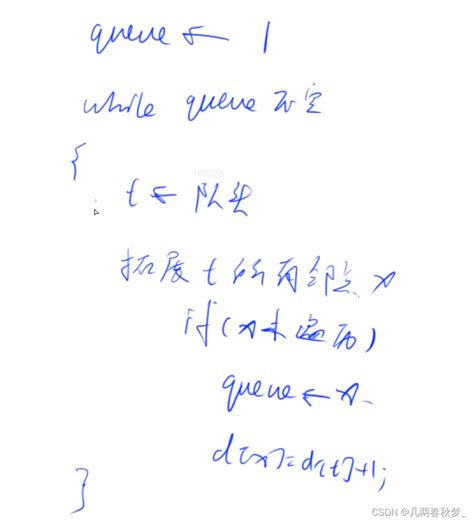 queue ← 1
while queue 不空
{
t ← 队头
拓展 t 的所有邻点 x
if (x未遍历)
queue ← x
d[x] = d[t] + 1;
}
CSDN @几两春秋梦_